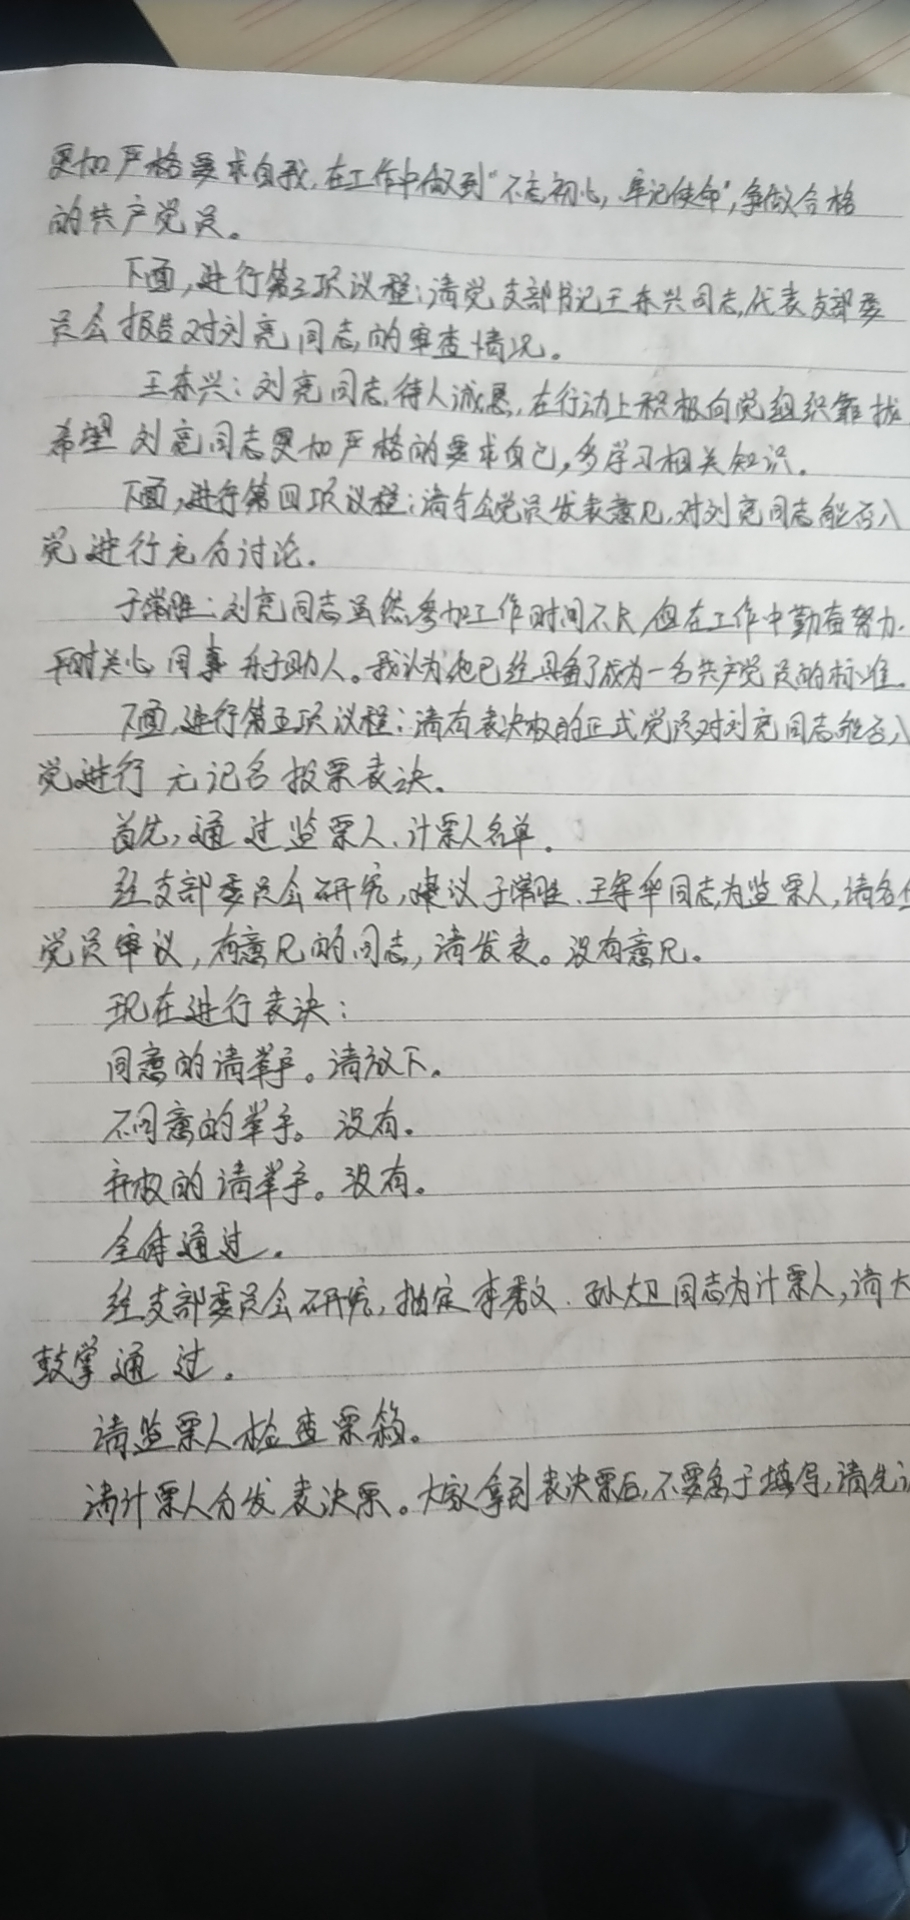 更加严格要求自我,在工作中做到“不忘初心,牢记使命”,争做合格
的共产党员。
下面,进行第三项议程:请党支部书记王东兴同志,代表支部委
员会报告对刘亮同志的审查情况。
王东兴:刘亮同志,待人诚恳,在行动上积极向党组织靠拢
希望刘亮同志更加严格的要求自己,多学习相关知识。
下面,进行第四项议程:请与会党员发表意见,对刘亮同志能否入
党进行充分讨论。
于常胜:刘亮同志虽然参加工作时间不长,但在工作中勤奋努力.
平时关心同事 乐于助人。我认为他已经具备了成为一名共产党员的标准.
下面,进行第五项议程:请有表决权的正式党员对刘亮同志能否入
党进行无记名投票表决。
首先,通过监票人、计票人名单.
经支部委员会研究,建议于常胜、王军华同志,为监票人,请各位
党员审议,有意见的同志,请发表。没有意见。
现在进行表决:
同意的请举手。请放下。
不同意的举手。没有。
弃权的请举手。没有。
全体通过.
经支部委员会研究,指定李秀文、孙大卫同志为计票人,请大
鼓掌通过.
请监票人检查票箱。
请计票人分发表决票。大家拿到表决票后,不要急于填写,请先认